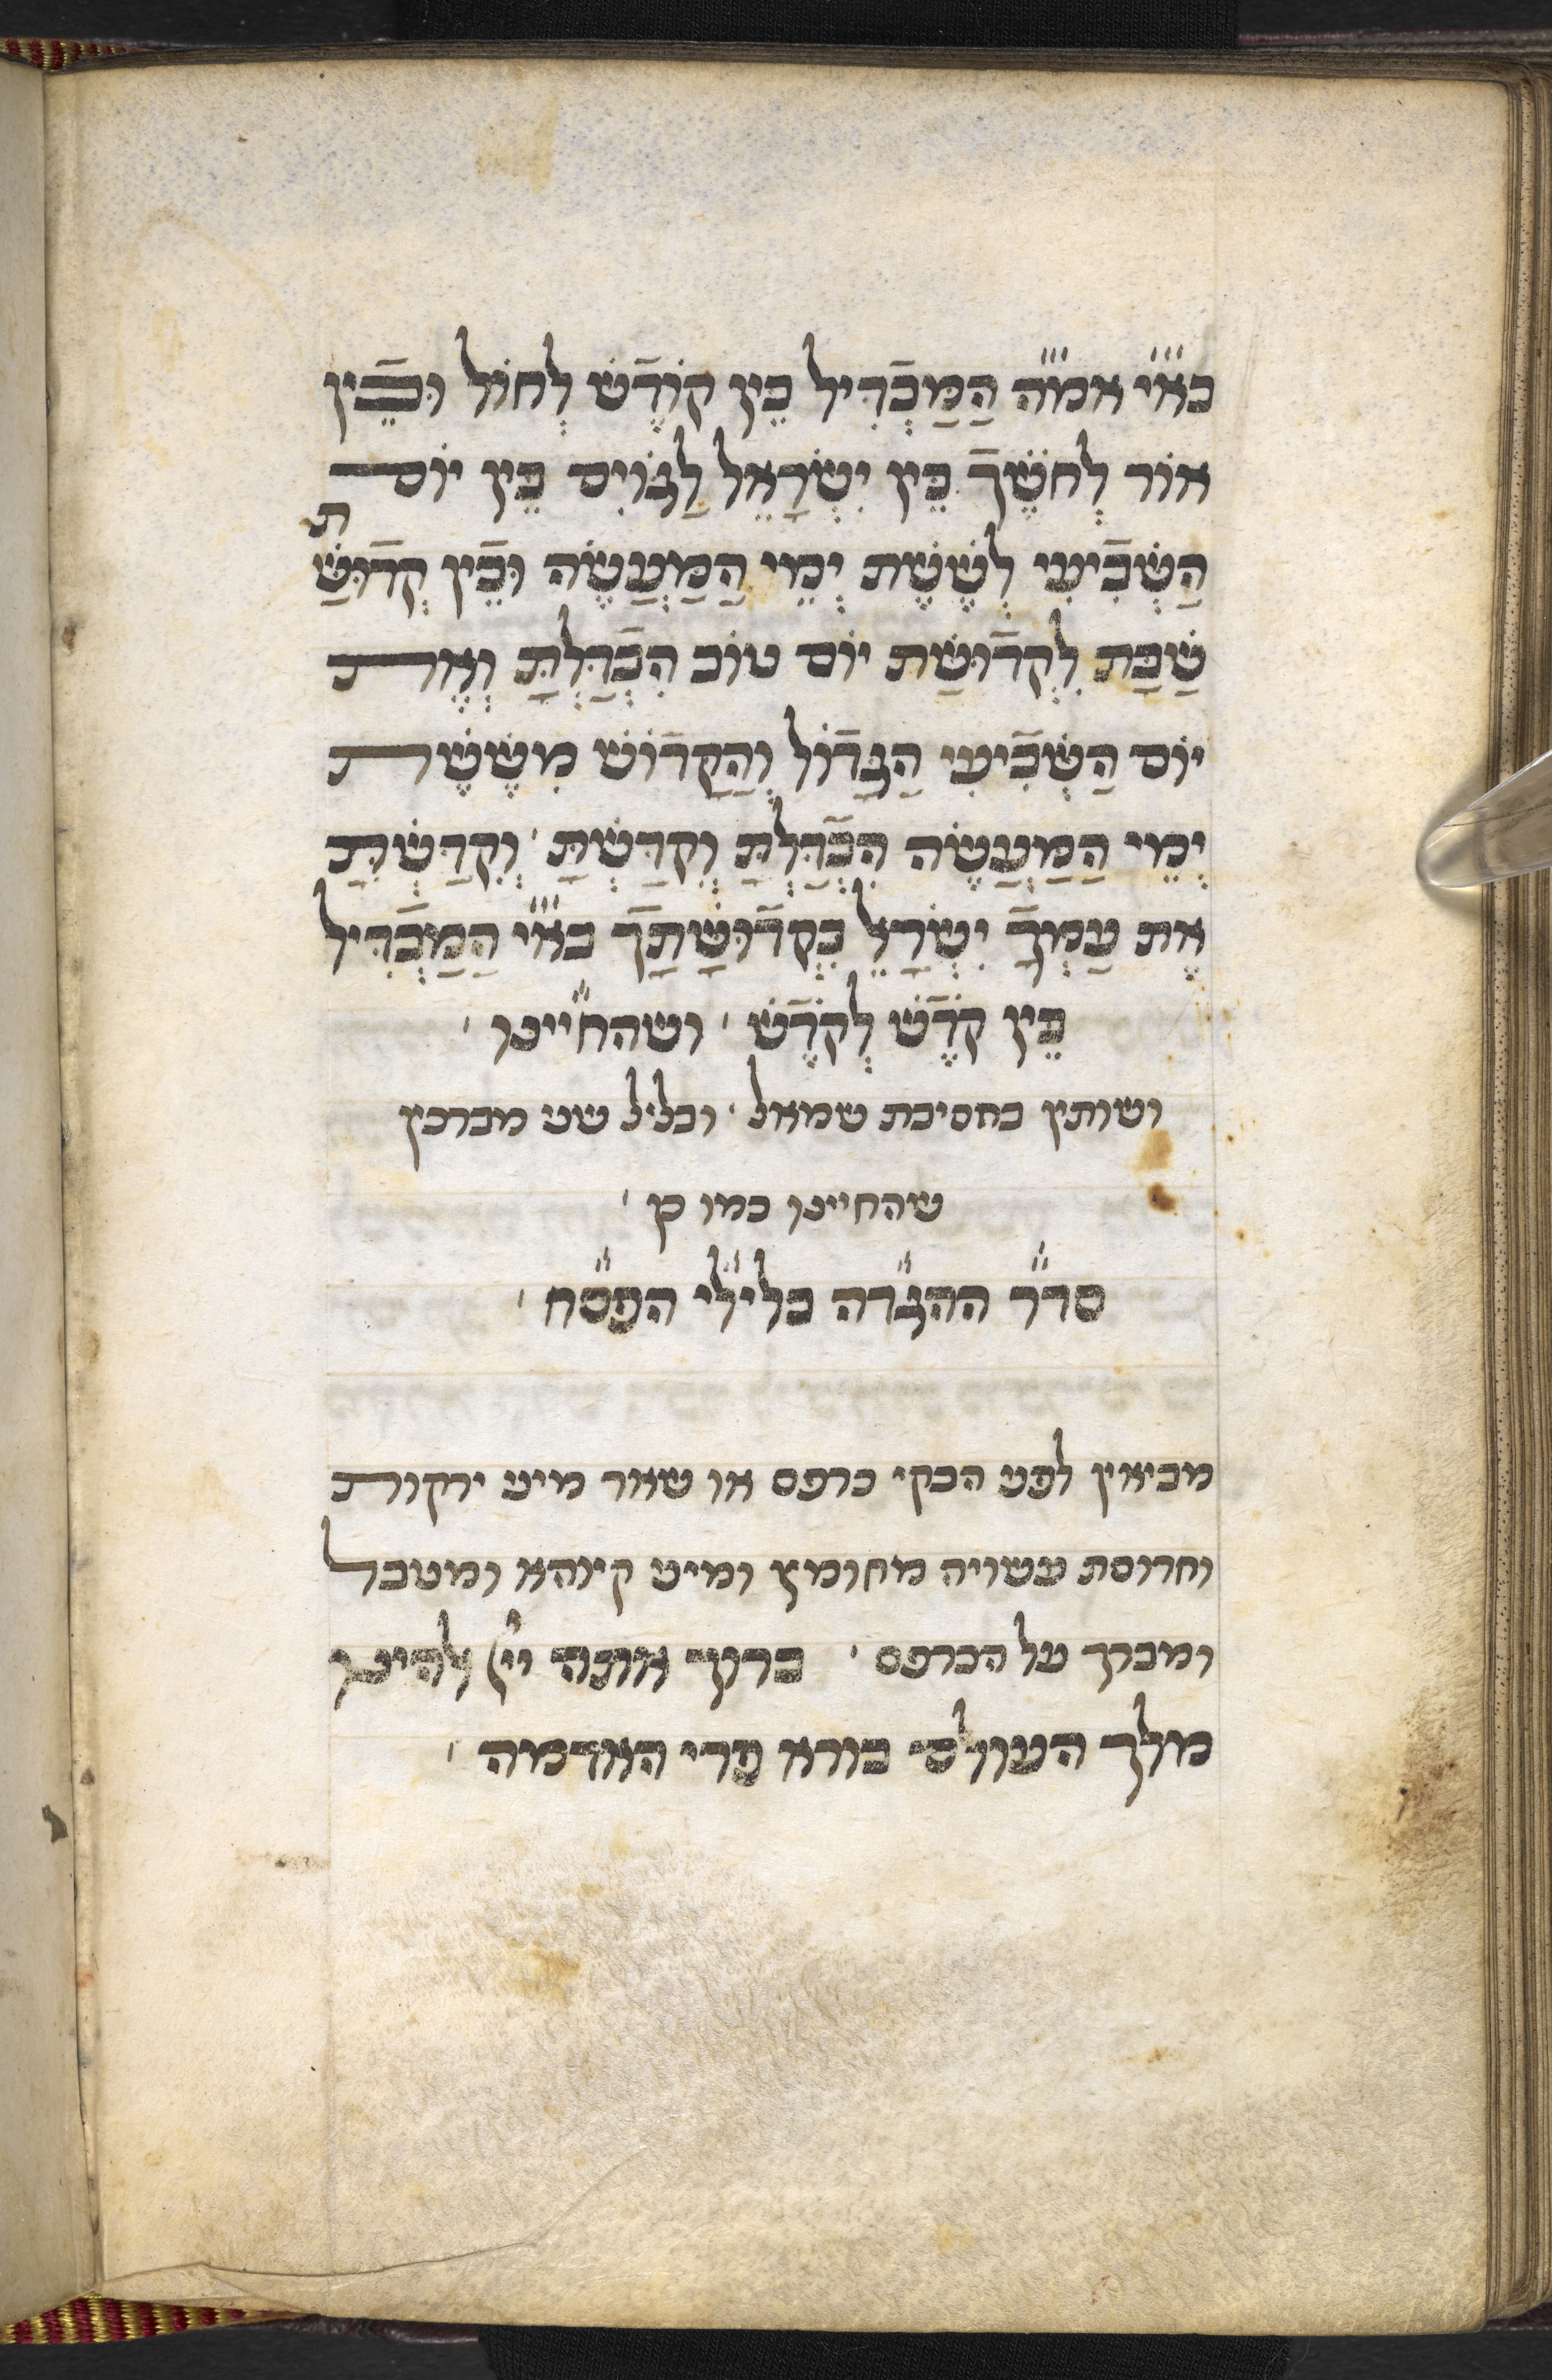 באײ אמה הַמַבְדִיל בֵין קוֹדֶש לְחוֹל וּבֵין
אוֹר לְחֹשֶךְ בֵין יִשְרָאֵל לַגוֹיִם בֵין יוֹם
הַשְבִיעִי לְשֶשֶת יְמֵי הַמַעֲשֶה וּבֵין קְדוּשַת
שַבַת לִקְדוּשַת יוֹם טוֹב הִבְדַלְתָ וְאֶת
יוֹם הַשְבִיעִי הַגָדוֹל וְהַקָדוֹש מִשֶשֶת
יְמֵי הַמַעֲשֶה הִבְדַלְתָ וְקִדַשְתָ ׳ וְקִדַשְתָ
אֶת עַמְךָ יִשְרָאֵל בִקְדוּשָתָךְ באײ הַמַבְדִיל
בֵין קֹדֶש לְקֹדֶש ׳ ושהח״יינו ׳
ושותין בהסיבת שמאל ׳ ובליל שני מברכין
שהחיינו כמו כן ׳
סד״ר ההג״דה בלי״לי הפ״סח ׳
מביאין לפני הבקי כרפס או שאר מיני ירקות
וחרוסת עשויה מחומץ ומיני קיוהא ומטבל
ומברך על הכרפס ׳ ברוך אתה ײ אלהינו
מלך העולם בורא פרי האדמה ׳